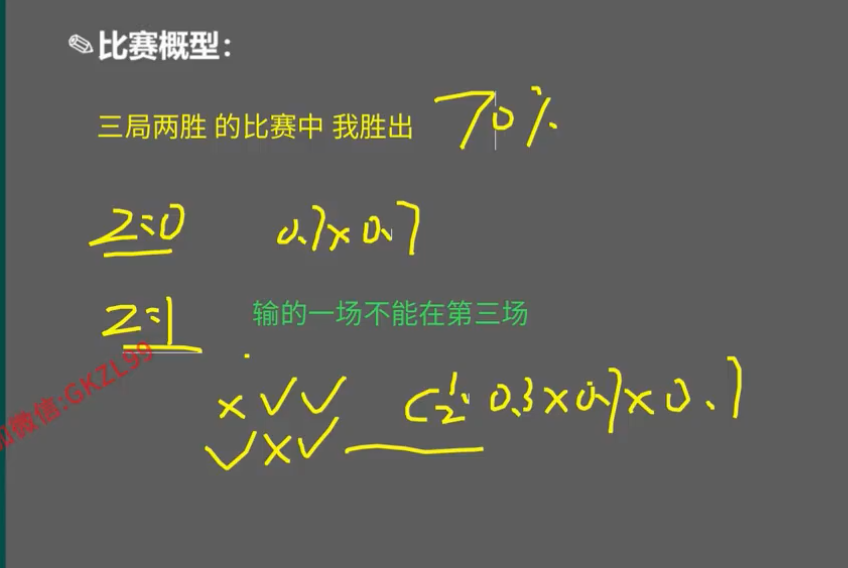 比赛概型：
三局两胜 的比赛中 我胜出 70%
2:0 0.7×0.7
2:1 输的一场不能在第三场
×✓✓ C₂¹·0.3×0.7×0.7
✓×✓
微信:GKZL99